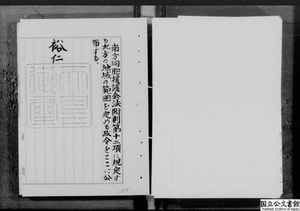 南方同胞援護会法附則第十二項に規定す
る北方の地域の範囲を定める政令をここに公
布する。
裕仁
国立公文書館
National Archives of Japan